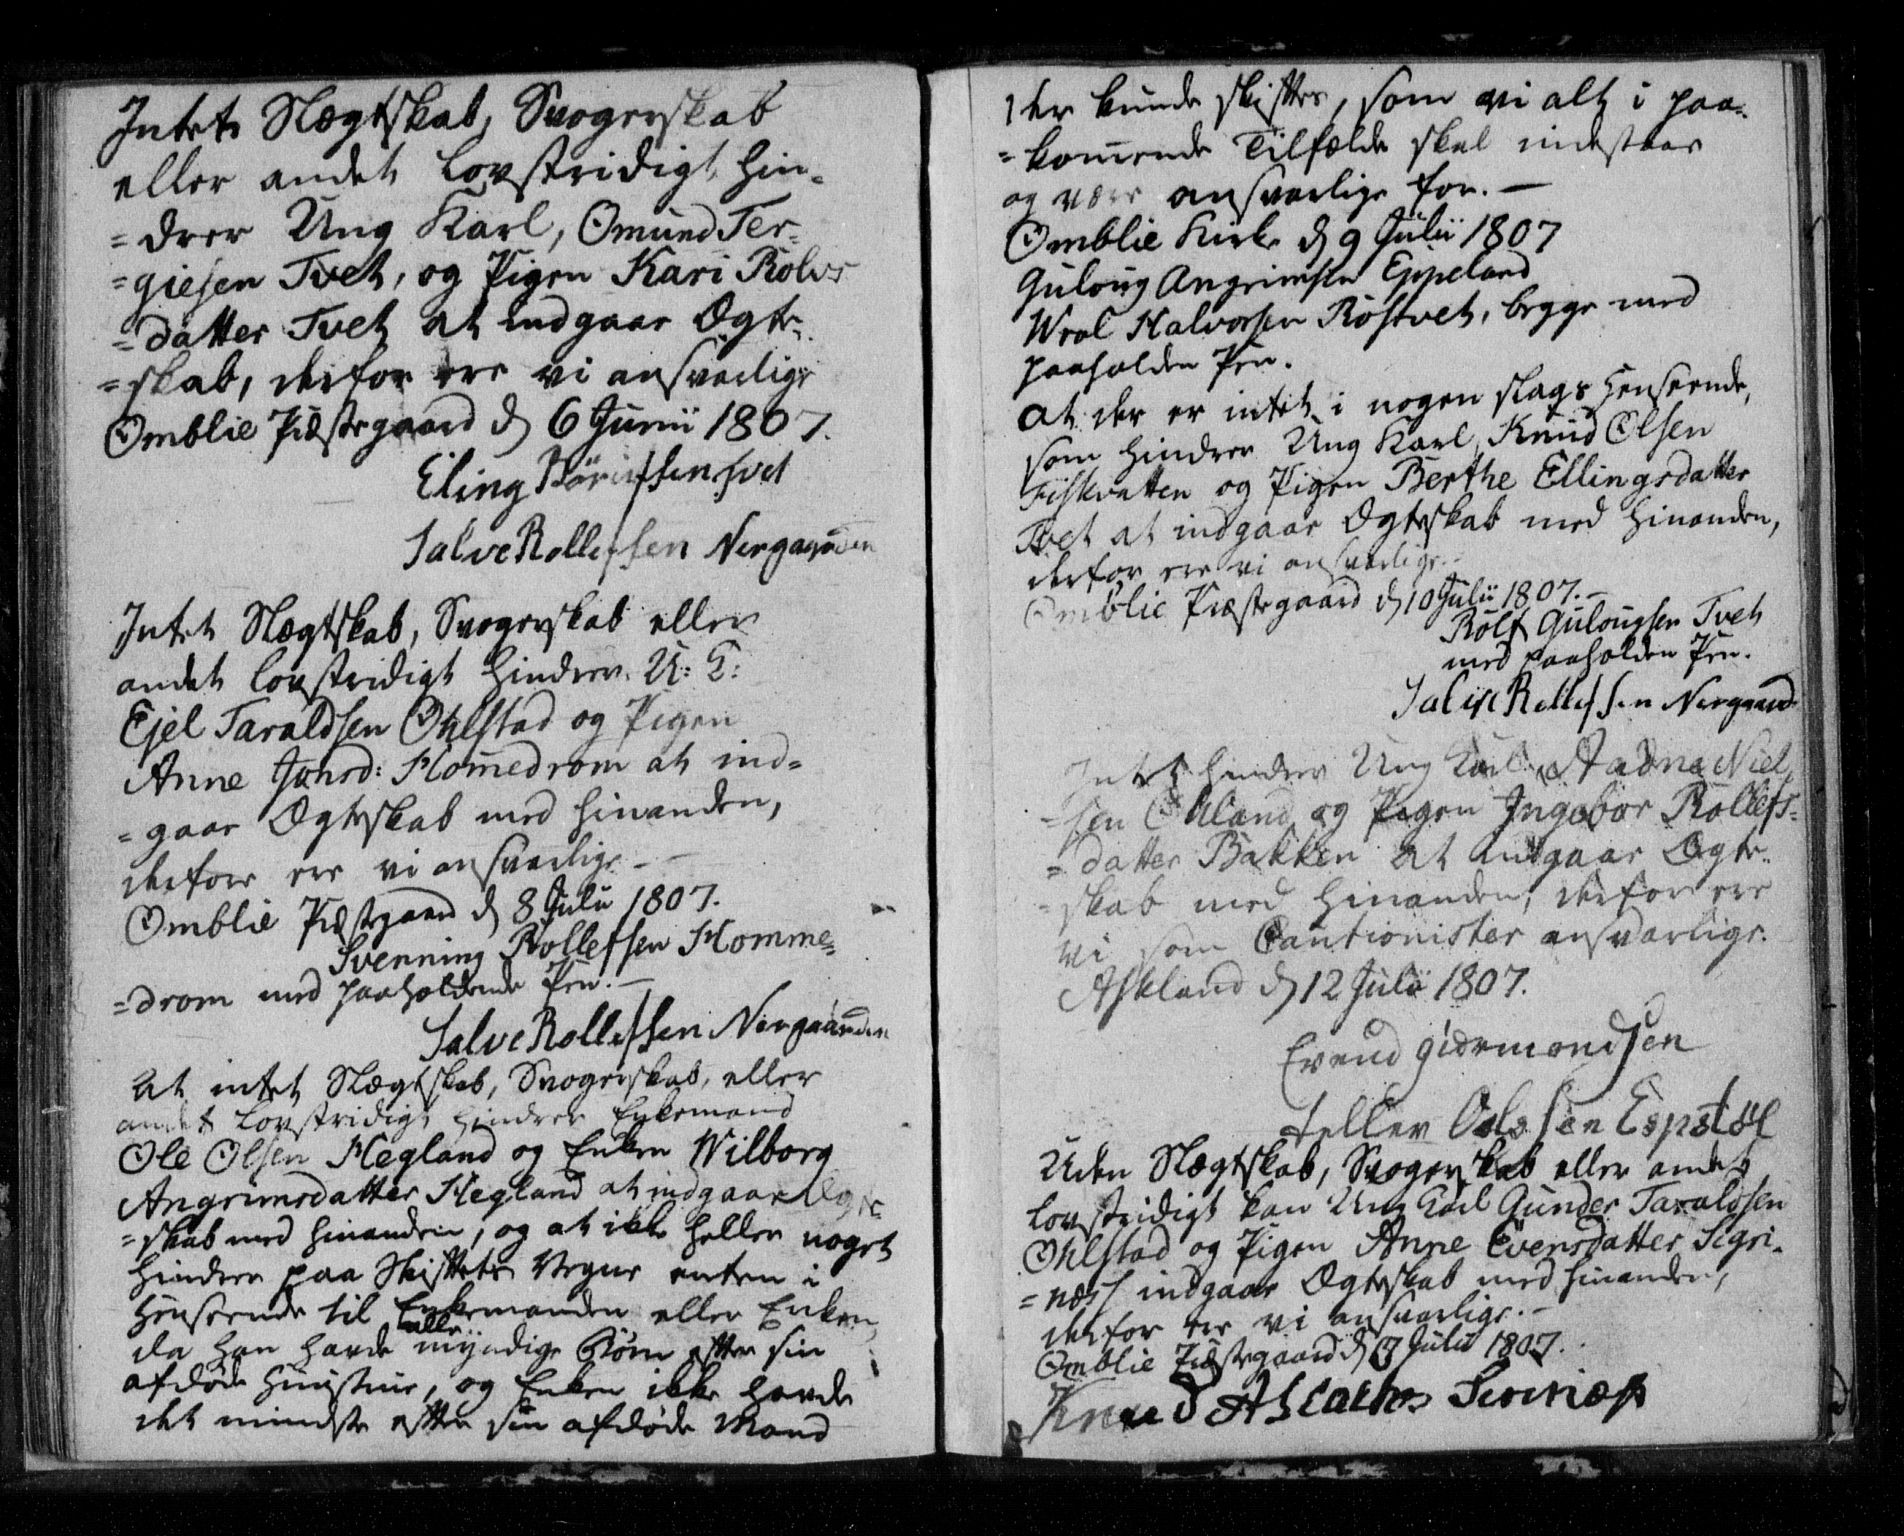 Intet Slægtskab, Svogerskab
eller andet lovstridigt hin¬
=drer Ung Karl, Omund Ter¬
=giesen Tvet, og Pigen Kari Rolvs
=datter Tvet at indgaae Ægte¬
=skab, derfor ere vi ansvarlige
Omblie Præstegaard d 6 Junii 1807.
Eling Tvet
Salve Rollefssen Nergaarden
Intet Slægtskab, Svogerskab eller
andet lovstridigt hindrer U: K:
Ejel Taraldsen Ohlstad og Pigen
Anne Jensd: Hommedrom at ind=
=gaae Ægteskab med hinanden,
derfore ere vi ansvarlige -
Omblie Præstgaard d 8 Julii 1807.
Svenning Rollefsen Homme=
=drom med paaholdende Pen. -
Salve Rollefssen Nergaarden
At intet Slægtskab, Svogerskab, eller
andet lovstridigt hindrer Enkemand
Ole Olsen Hegland og Enken Wilborg
Angrimsdatter Hegland at indgaae Ægte
=skab med hinanden, og at ikke heller noget
hindrer paa Skiftets Vegne enten i
Henseende til Enkemanden eller Enken,
da han havde alle myndige Børn efter sin
afdøde Hustrue, og Enken ikke havde
det mindste efter sin afdøde Mand
der kunde skiftes, som vi alt i paa¬
=kommende Tilfælde skal indestaae
og være ansvarlige for. -
Omblie Kirke d 9 Julii 1807
Guloug Angrimsen Eppeland
Wraal Halvorsen Röstvet, begge med
paaholden Pen.
At der er intet i nogen slags Henseende,
som hindrer Ung Karl Knud Olsen
Fiskvatten og Pigen Berthe Ellingsdatter
Tvet at indgaae Ægteskab med hinanden,
derfor ere vi ansvarlige.
Omblie Præstegaard d 10 Julii 1807. -
Rolf Gulougsen Tvet
med paaholden Pen.
Salve Rollefssen Nergaard
Intet hindrer Ung Karl Aadne Niel
=sen Uland og Pigen Ingebor Rollefs=
=datter Bakken at indgaae Ægte¬
=skab med hinanden, derfor ere
vi som Cautionister ansvarlige.
Askland d 12 Julii 1807.
Evend giermondsen
tellev Olssen Espstøl
Uden Slægtskab, Svogerskab eller andet
lovstridigt kan Ung Karl Gunder Taraldsen
Ohlstad og Pigen Anne Evensdatter Sigri¬
=næs indgaae Ægteskab med hinanden,
derfor ere vi ansvarlige. -
Omblie Præstegaard d Julii 1807.
Knud